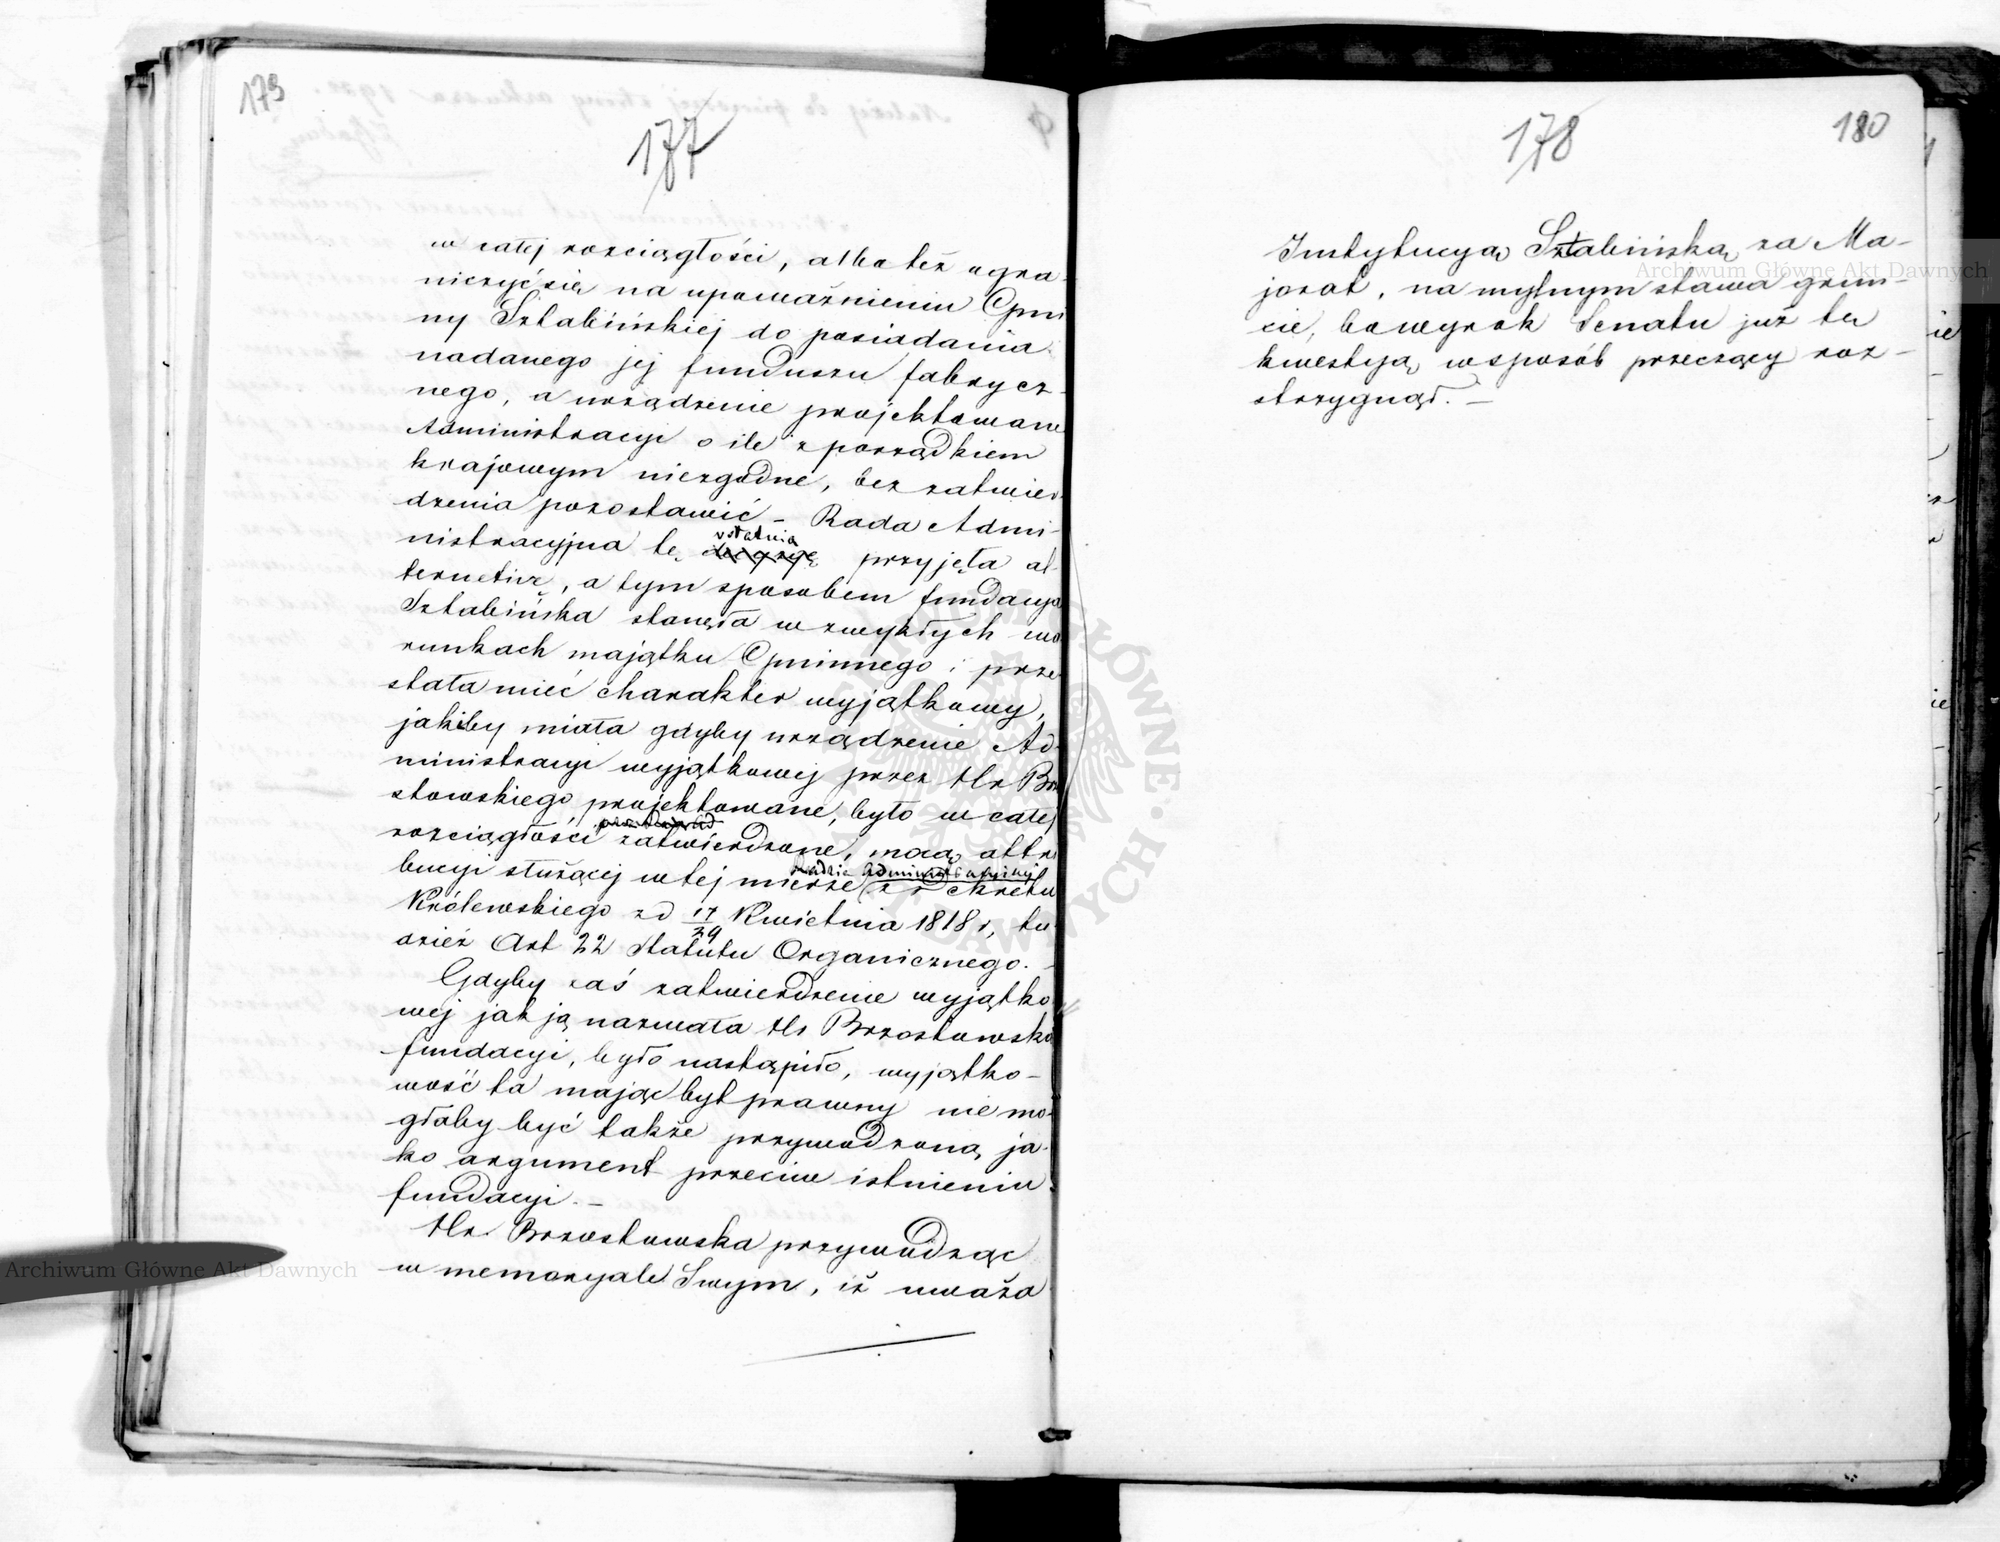 179
177
w całej rozciągłości, albo też ogra-
niczyć się na upoważnieniu Gmi
ny Sztabińskiej do posiadania
nadanego jej funduszu fabrycz-
nego, a urządzenie projektowane
Administracyi o ile z porządkiem
krajowym niezgodne, bez zatwier-
dzenia pozostawić – Rada Admi-
nistracyjna tę ostatnią przyjęła al-
ternetiwę, a tym sposobem fundacya
Sztabińska stanęła w zwykłych wa
runkach majątku Gminnego i prze
stała mieć charakter wyjątkowy,
jakiby miała gdyby urządzenie Ad-
ministracyi wyjątkowej przez Hr Brzo
stowskiego projektowane, było w całej
rozciągłości zatwierdzone, mocą attry
bucyi służącej w tej mierze Radzie Administracyjnej z dekretu
Królewskiego zd 17/29 Kwietnia 1818 r, tu
dzież Art 22 Statutu Organicznego. –
Gdyby zaś zatwierdzenie wyjątko
wej jak ją nazwała Hr Brzostowska
fundacyi, było nastąpiło, wyjątko-
wość ta mając byt prawny nie mo-
głaby być także przywodzoną ja-
ko argument przeciw istnieniu
fundacyi. –
Hr. Brzostowska przywodząc
w memoryale Swym, iż uważa
178
180
Instytucyą Sztabińską za Ma-
jorat, na mylnym stawa grun-
cie, bo wyrok Senatu już tę
kwestyą w sposób przeczący roz-
strzygnął. –
Archiwum Główne Akt Dawnych
Archiwum Główne Akt Dawnych